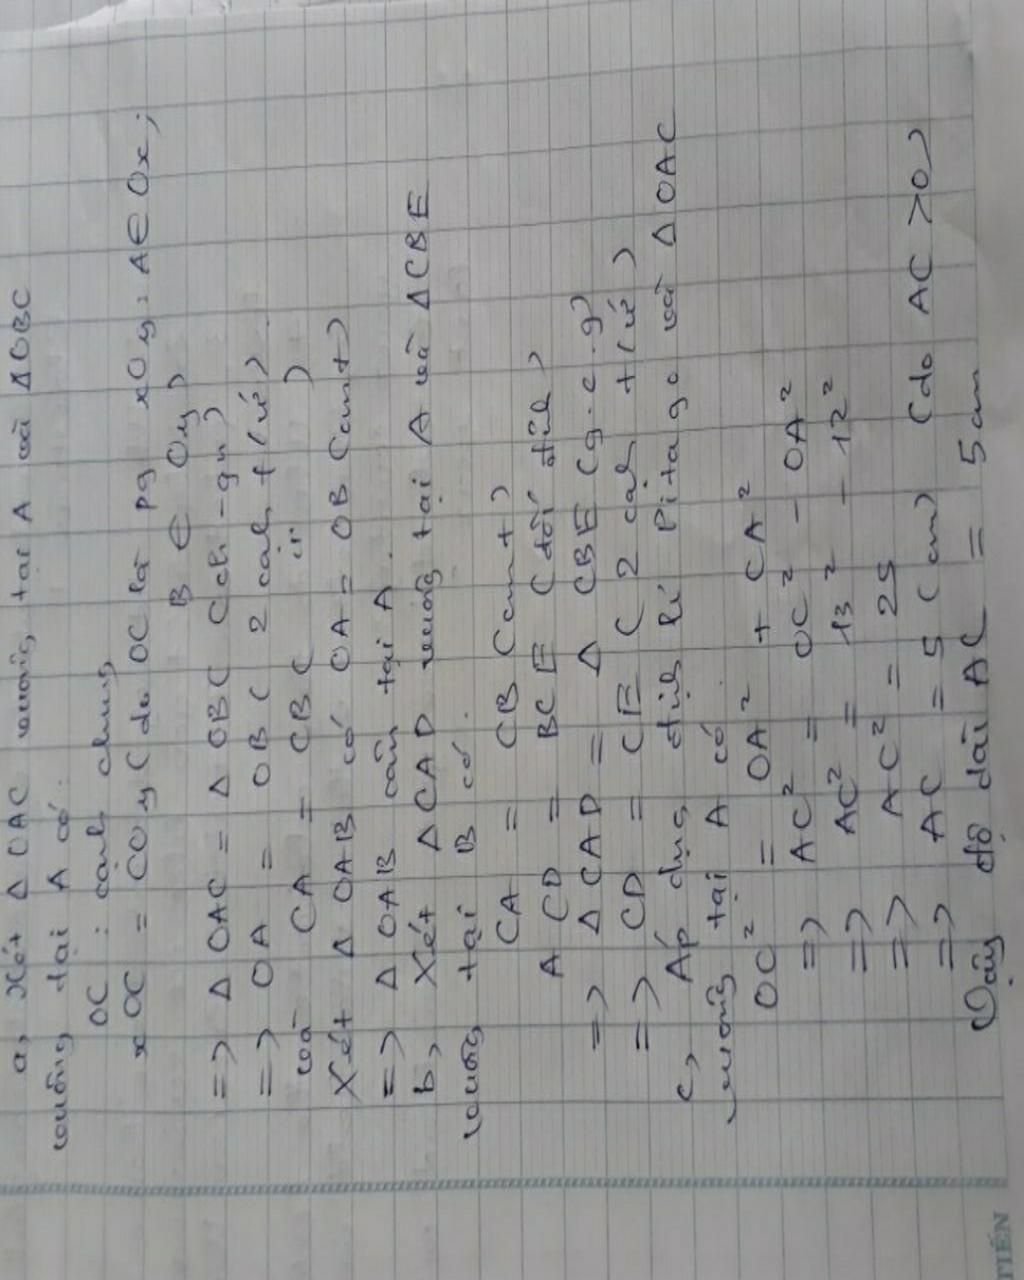 a, Xét Δ OAC vuông tại A và ΔOBC
vuông tại A có:
OC : cạnh chung
xOC = COy (do OC là pg xOy, A∈Ox;
B ∈ Oy)
=> Δ OAC = Δ OBC (ch-gn)
=> OA = OB (2 cah t (ứ)
và CA = CB ( ir )
Xét Δ OAB có OA = OB (cmt)
=> Δ OAB cân tại A.
b, Xét ΔCAD vuông tại A và ΔCBE
vuông tại B có.
CA = CB (cmt)
ACD = BCE (đối đỉnh)
=> Δ CAD = Δ CBE (g.c.g)
=> CD = CE ( 2 cạh t (ứ)
c, Áp dụng định lí Pitago và Δ OAC
vuông tại A có
OC² = OA² + CA²
=> AC² = OC² - OA²
=> AC² = 13² - 12²
=> AC² = 25
=> AC = 5 (cm) (do AC >0)
Vậy độ dài AC = 5cm
TIẾN